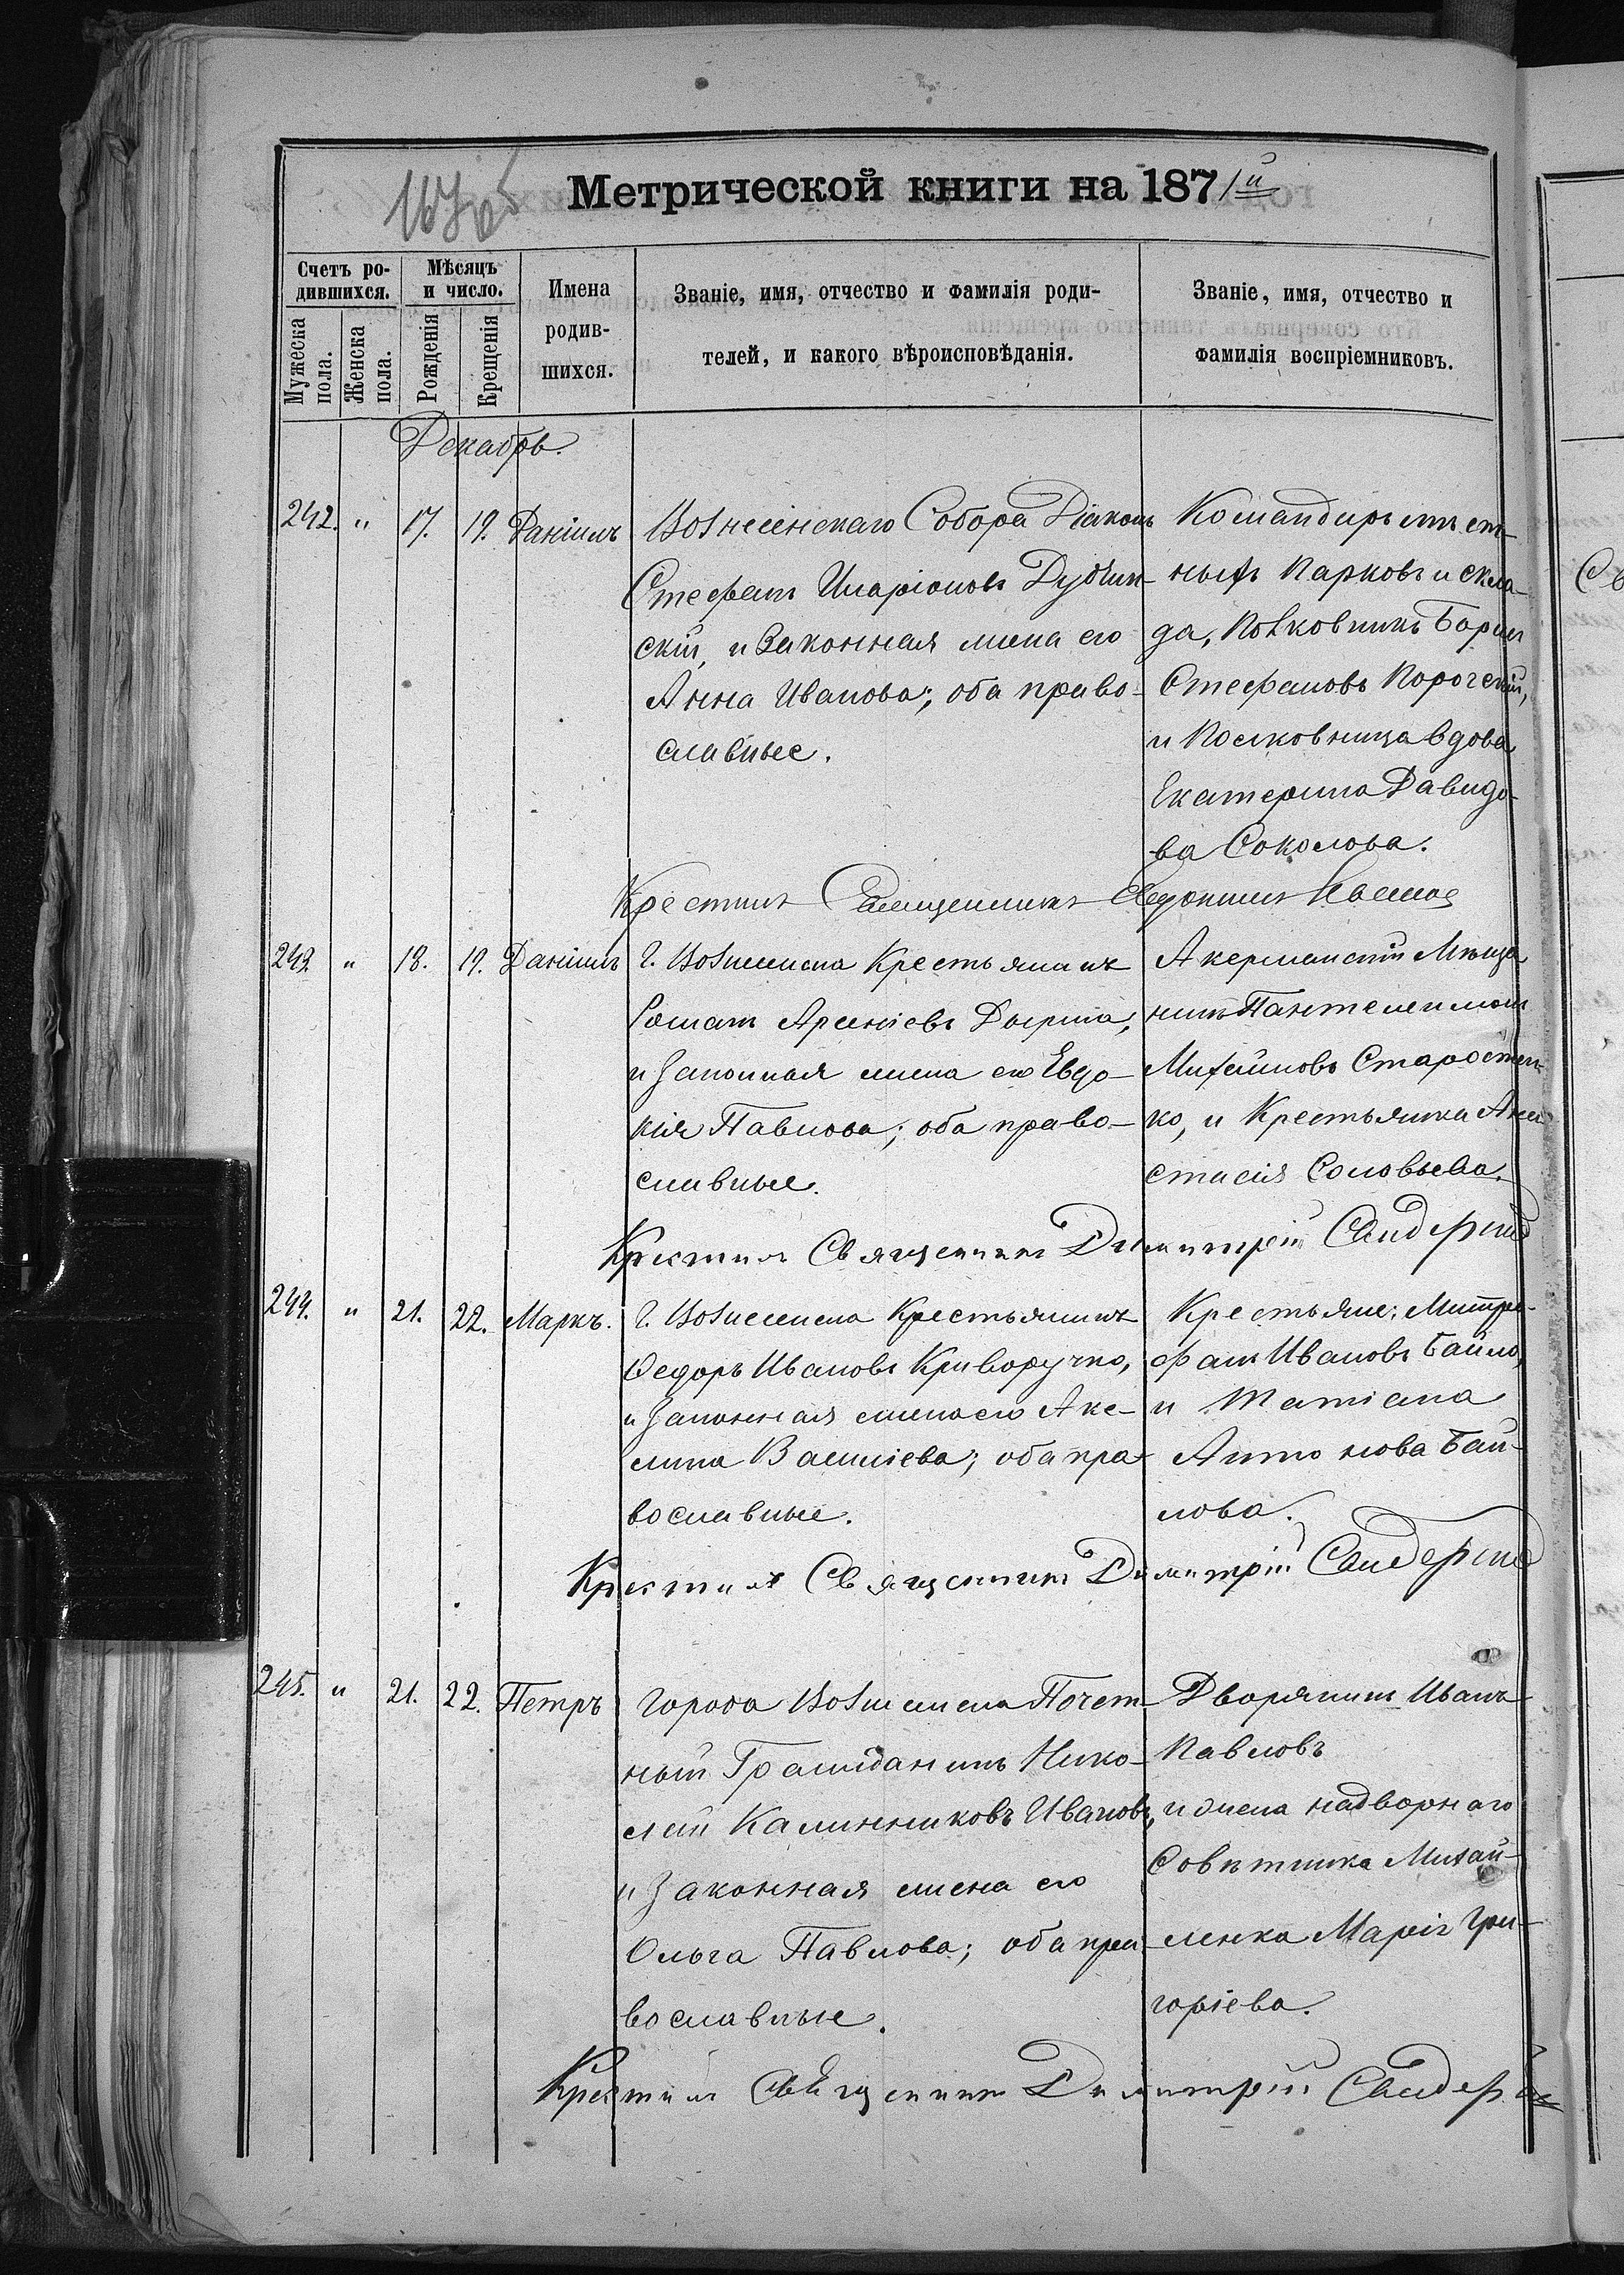 Метрической книги на 1871й
Счетъ ро-
дившихся.
Мужеска
пола.
Женска
пола.
Мѣсяцъ
и число.
Рожденія
Крещенія
Имена
родив-
шихся.
Званіе, имя, отчество и фамилія роди-
телей, и какого вѣроисповѣданія.
Званіе, имя, отчество и
фамилія воспріемниковъ.
Декабрь.
242. " 17. 19. Даніилъ
Вознесенскаго Собора Діаконъ
Стефанъ Иларіоновъ Дубин-
скій, и законная жена его
Анна Иванова; оба право-
славные.
Командиръ
ныхъ парковъ и скла-
да, Полковникъ Борисъ
Стефановъ
и Полковница вдова
Екатерина Давидо-
ва Соколова.
Крестилъ Священникъ Евдокимъ
243. " 18. 19. Даніилъ
Г. Вознесенска Крестьянинъ
Романъ Арсеніевъ
и законная жена его Евдо-
кія Павлова; оба право-
славные.
Акерманскій Мѣща
нинъ Пантелеимонъ
Михайловъ Старостен-
ко, и Крестьянка Ана
стасія Соловьева.
Крестилъ Священникъ Димитрій
244. " 21. 22. Маркъ.
Г. Вознесенска Крестьянинъ
Ѳедоръ Ивановъ Криворучко,
и законная жена его Аке-
лина Василіева; оба пра-
вославные.
Крестьяне: Митро-
фанъ Ивановъ Байло,
и Татіана
Антонова Бай-
лова.
Крестилъ Священникъ Димитрій
245. " 21. 22. Петръ
Города Вознесенска Почет-
ный Гражданинъ Нико-
лай Калинниковъ Ивановъ,
и законная жена его
Ольга Павлова; оба пра-
вославные.
Дворянинъ Иванъ
Павловъ
и жена надворнаго
Совѣтника Михай-
ленка Марія Гри-
горіева.
Крестилъ Священникъ Димитрій